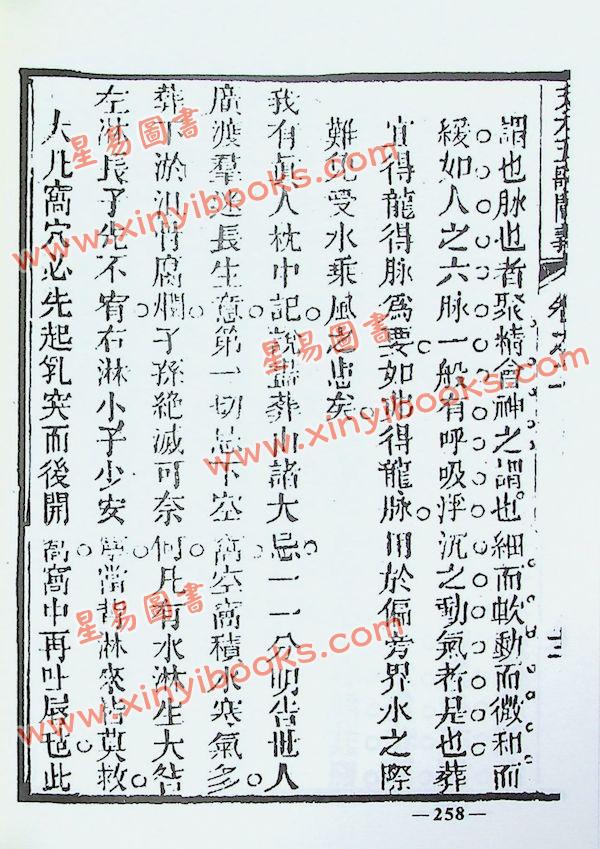 天元五歌闡義
謂也脉也者聚精會神之謂也細而軟動而微和而
緩如人之六脉一般有呼吸浮沉之動氣者是也葬
宜得龍得脉爲要如此得龍脉用於偏旁界水之際
難免受水乘風之患矣
我有真人枕中記說盡葬山諸大忌一一分明告世人
廣渡羣迷長生意第一切忌下空窩空窩積水寒氣多
葬下淤泪骨腐爛子孫絶滅可奈何凡有水淋生大咎
左淋長子先不宥右淋小子少安當背淋來皆莫救
大凡窩穴必先起乳突而後開窩窩中再吐唇毡此
—258—
星易圖書
www.xinyibooks.com
星易圖書
www.xinyibooks.com
星易圖書
www.xinyibooks.com
星易圖書
www.xinyibooks.com